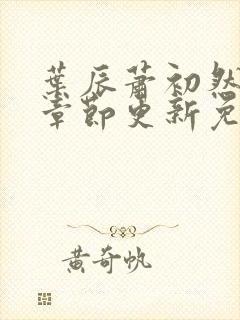 葉辰蕭初然
章節更新免
黃奇帆